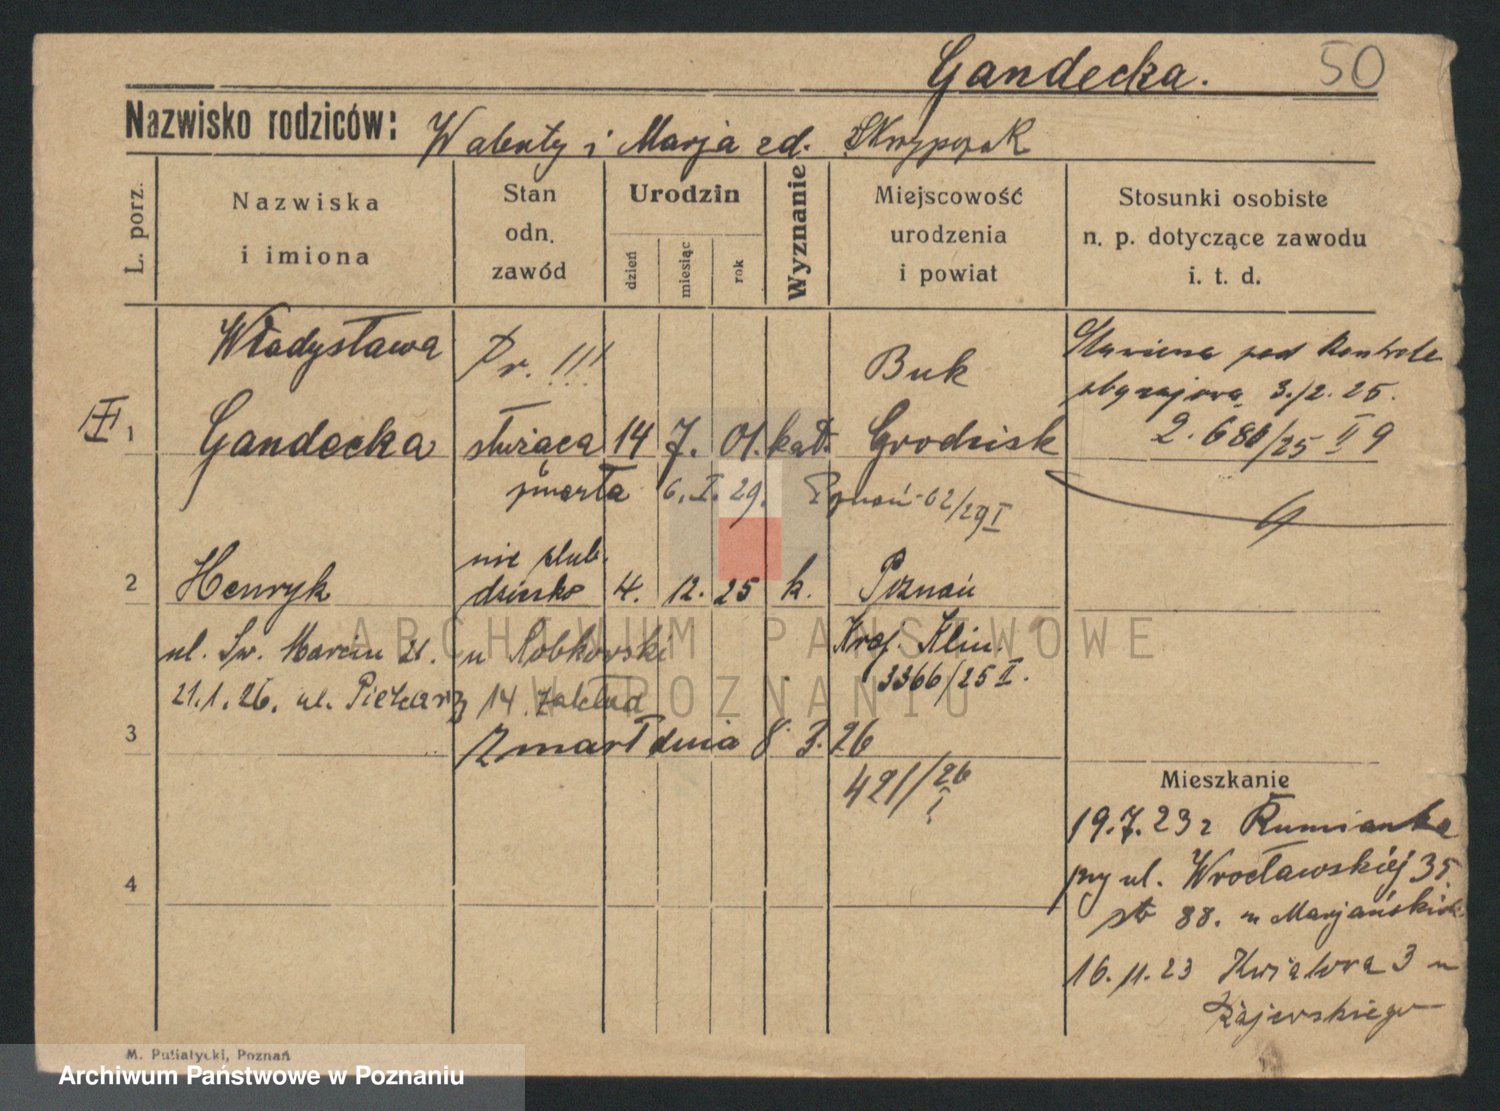 Gandecka. 50
Nazwisko rodziców: Walenty i Marja zd. Skrzypczak
L. porz.
Nazwiska
i imiona
Stan
odn.
zawód
Urodzin
dzień
miesiąc
rok
Wyznanie
Miejscowość
urodzenia
i powiat
Stosunki osobiste
n. p. dotyczące zawodu
i. t. d.
Władysława Pr. !!! Buk
1 Gandecka służąca 14 7. 01. kat. Grodzisk
zmarła 6. I. 29. Poznań 62/29 I
Stawiona pod kontrolę
obyczajową 3./2. 25.
2. 680/25 II 9
nie ślub.
2 Henryk dziecko 4. 12. 25 k. Poznań
ul. Św. Marcin 21. u Robkowski
3366/25 II.
21.1.26. ul. Piekary 14 zakład
3 Zmarł dnia 8. 3. 26
421/26
I
4
Mieszkanie
19.7.23 z Rumianka
przy ul. Wrocławskiej 35.
88. u
16.11.23 Kwiatowa 3 u
Rajewskiego
M. Putiatycki, Poznań
ARCHIWUM PAŃSTWOWE
W POZNANIU
Archiwum Państwowe w Poznaniu